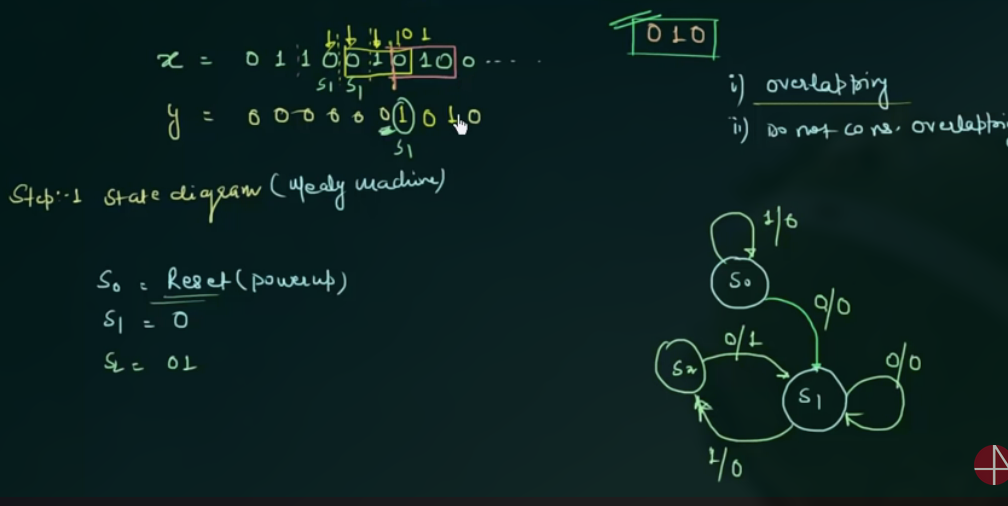 1 0 1
x = 0 1 1 0 0 1 0 1 0 0 ....
S1 S1
y = 0 0 0 0 0 0 1 0 1 0
S1
0 1 0
i) overlapping
ii) Do not cons. overlappin
Step:-1 State diagram (Mealy machine)
S0 = Reset (powerup)
S1 = 0
S2 = 01
1/0
S0
0/0
0/1
S2
S1
0/0
1/0